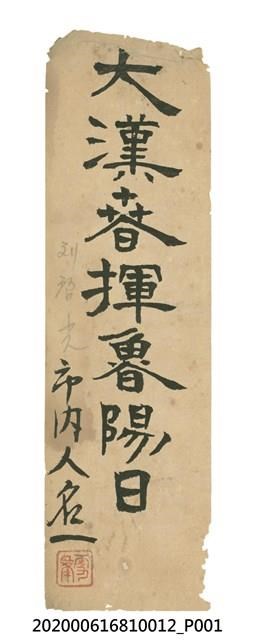 大漢春揮魯陽日
刘啓光
市内人名一
202000616810012_P001